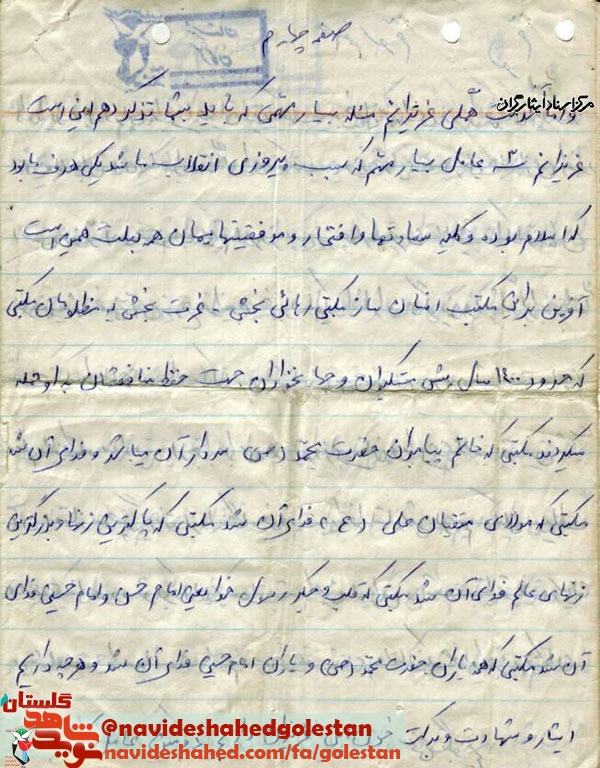 صفحه چهارم
مرکز اسناد ایثارگران
و اما ملت عزیزانم مسئله بسیار مهمی که باید بشما تذکر دهم این است
عزیزانم سه ۳ عامل بسیار مهم که سبب پیروزی انقلاب ما شد یکی هدف ما بود
که اسلام بوده و کلیه سعادتها و افتخار و موفقیتهایمان همه بعلت همین است
آفرین براین مکتب انسان ساز مکتبی رهائی بخشی - عزت بخشی به مظلومان مکتبی
که حدود ۱۴۰۰ سال پیش ستمگران و جهانخواران جهت حفظ منافعشان به او حمله
میکردند مکتبی که خاتم پیامبران حضرت محمد (ص) پاسدار آن میباشد و فدای آن شد
مکتبی که مولای متقیان علی (ع) فدای آن شد مکتبی که پاکترین زنها و بزرگترین
زنهای عالم فدای آن شد مکتبی که قلب و جگر رسول خدا یعنی امام حسن و امام حسین فدای
آن شد مکتبی که همه یاران حضرت محمد (ص) و یاران امام حسین فدای آن شد و هرچه داریم
ایثار و شهادت و برکت خون
نوید شاهد گلستان
@navideshahedgolestan
navideshahed.com/fa/golestan